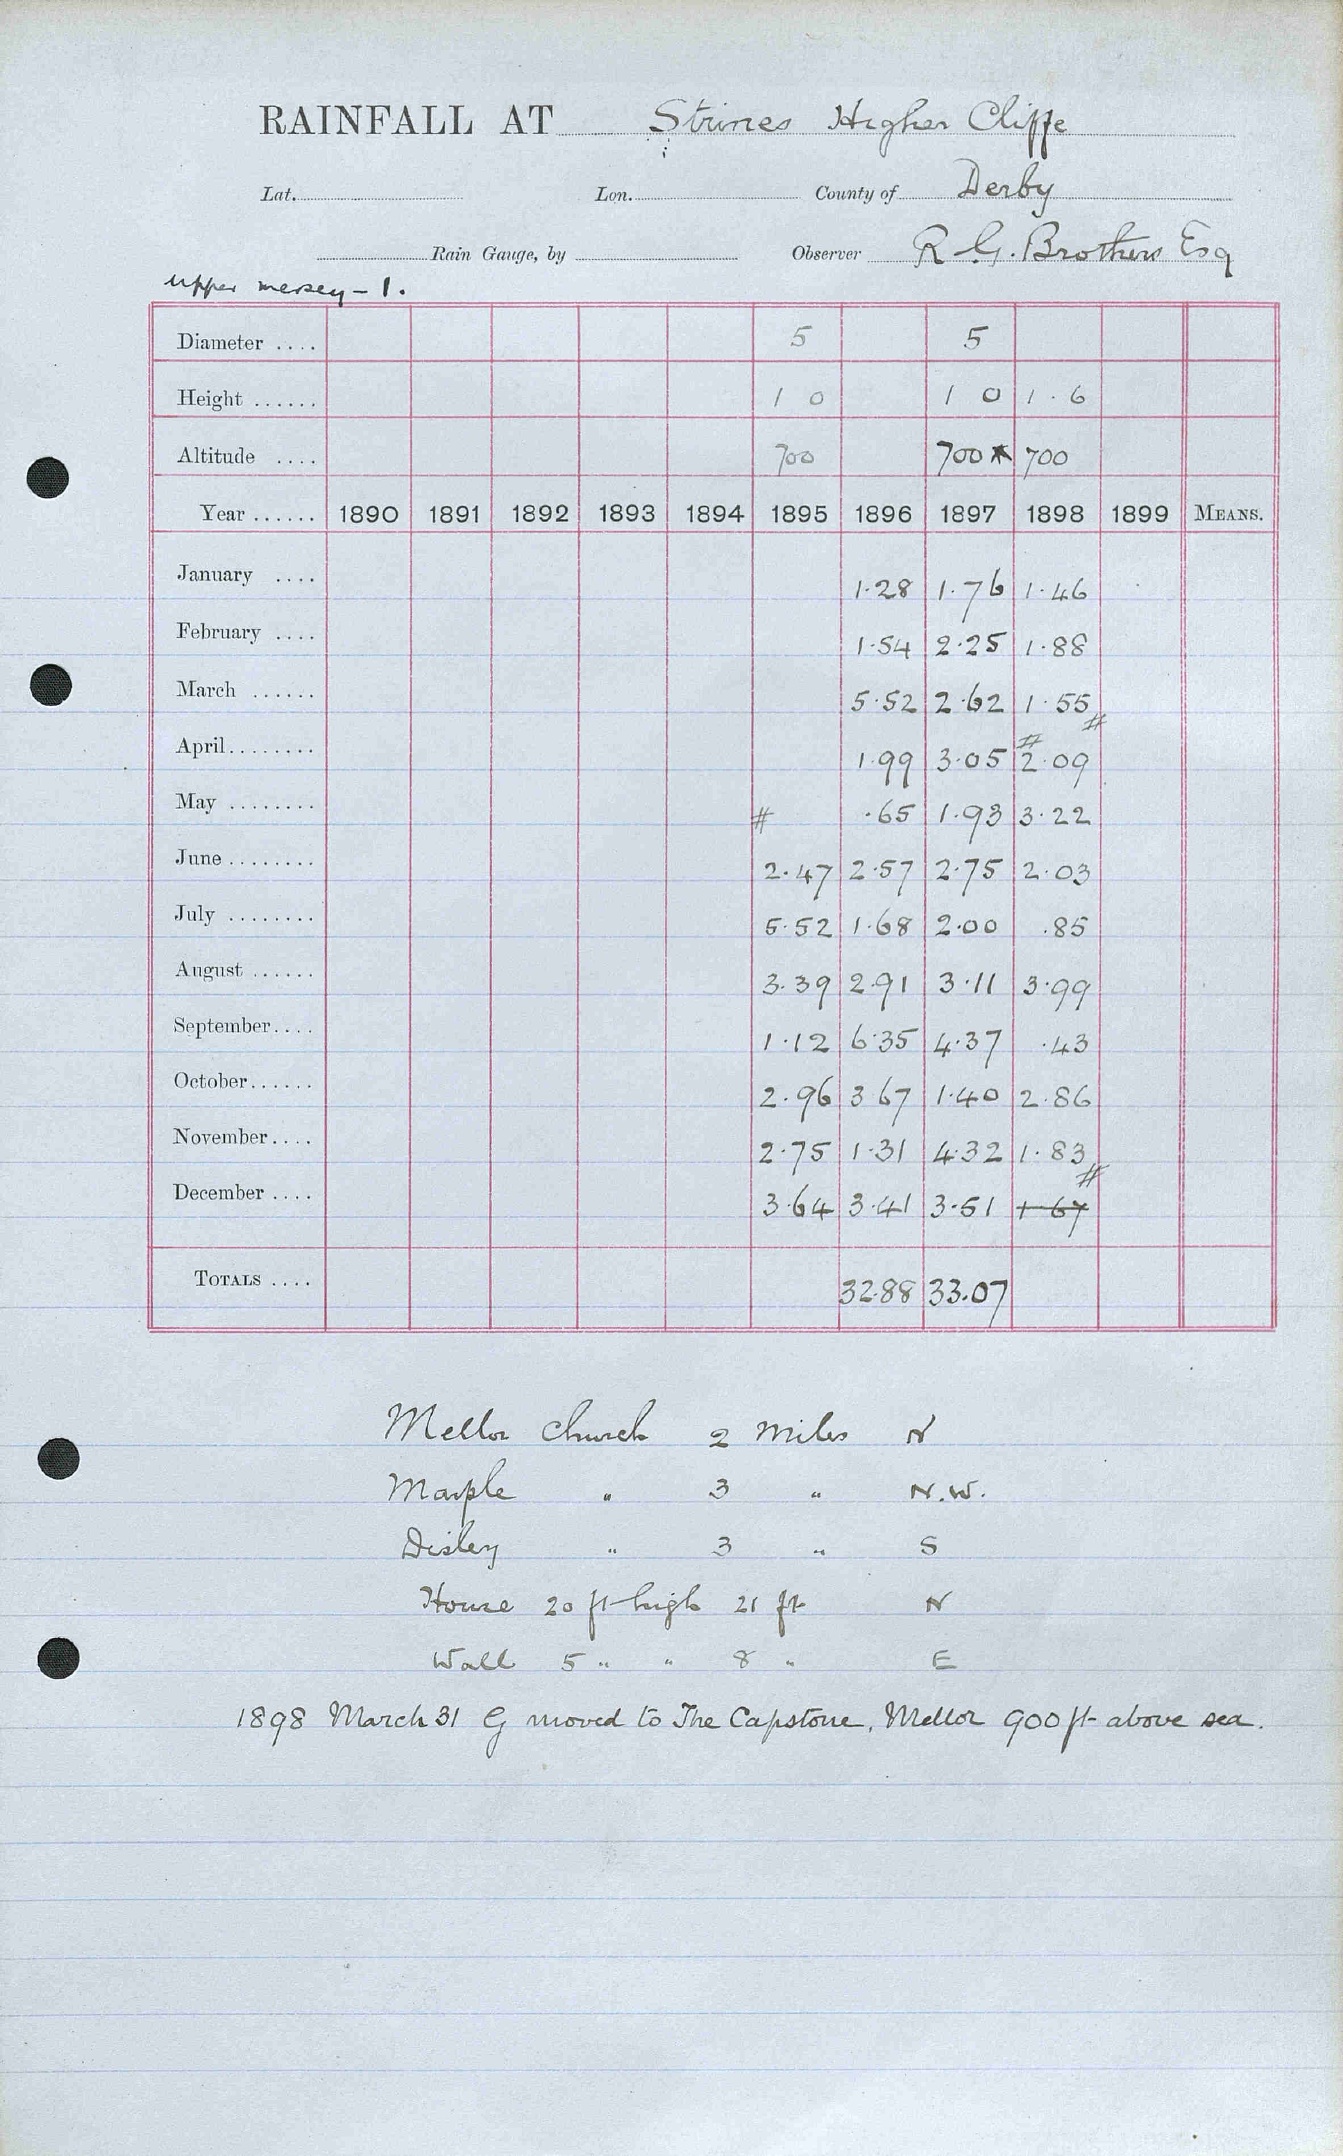 RAINFALL AT Strines Higher Cliffe
Lat. Lon. County of Derby
Rain Gauge, by Observer R. G. Brothers Esq
upper mersey - 1.
Diameter .... 5 5
Height ...... 1 0 1 0 1.6
Altitude .... 700 700 * 700
Year ...... 1890 1891 1892 1893 1894 1895 1896 1897 1898 1899 MEANS.
January .... 1.28 1.76 1.46
February .... 1.54 2.25 1.88
March ...... 5.52 2.62 1.55 #
April ........ 1.99 3.05 # 2.09
May ........ # .65 1.93 3.22
June ........ 2.47 2.57 2.75 2.03
July ........ 5.52 1.68 2.00 .85
August ...... 3.39 2.91 3.11 3.99
September.... 1.12 6.35 4.37 .43
October...... 2.96 3 67 1.40 2.86
November.... 2.75 1.31 4.32 1.83 #
December .... 3.64 3.41 3.51 1 67
TOTALS .... 32.88 33.07
Mellor Church 2 miles N
Marple " 3 " N.W.
Disley " 3 " S
House 20 ft high 21 ft N
Wall 5 " " 8 " E
1898 March 31 G moved to The Capstone, Mellor 900 ft above sea.